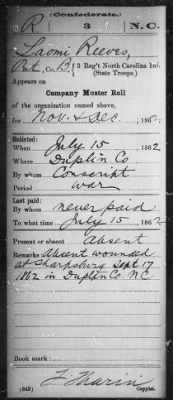 (Confederate.)
R 3 N.C.
Laomi Reeves
Pvt, Co. B, 3 Reg't North Carolina Inf.
(State Troops.)
Appears on
Company Muster Roll
of the organization named above,
for Nov & Dec, 1862.
Enlisted:
When July 15, 1862
Where Duplin Co
By whom Conscript
Period war
Last paid:
By whom never paid
To what time July 15, 1862
Present or absent Absent
Remarks: Absent wounded
at Sharpsburg Sept 17
1862 in Duplin Co. N.C
Book mark:
(642) Copyist.